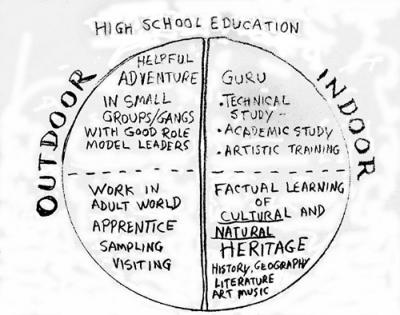 HIGH SCHOOL EDUCATION
OUTDOOR
HELPFUL
ADVENTURE
IN SMALL
GROUPS/GANGS
WITH GOOD ROLE
MODEL LEADERS
WORK IN
ADULT WORLD
APPRENTICE
SAMPLING
VISITING
INDOOR
GURU
• TECHNICAL
STUDY --
• ACADEMIC STUDY
• ARTISTIC TRAINING
FACTUAL LEARNING
OF
CULTURAL AND
NATURAL
HERITAGE
HISTORY, GEOGRAPHY
LITERATURE
ART MUSIC